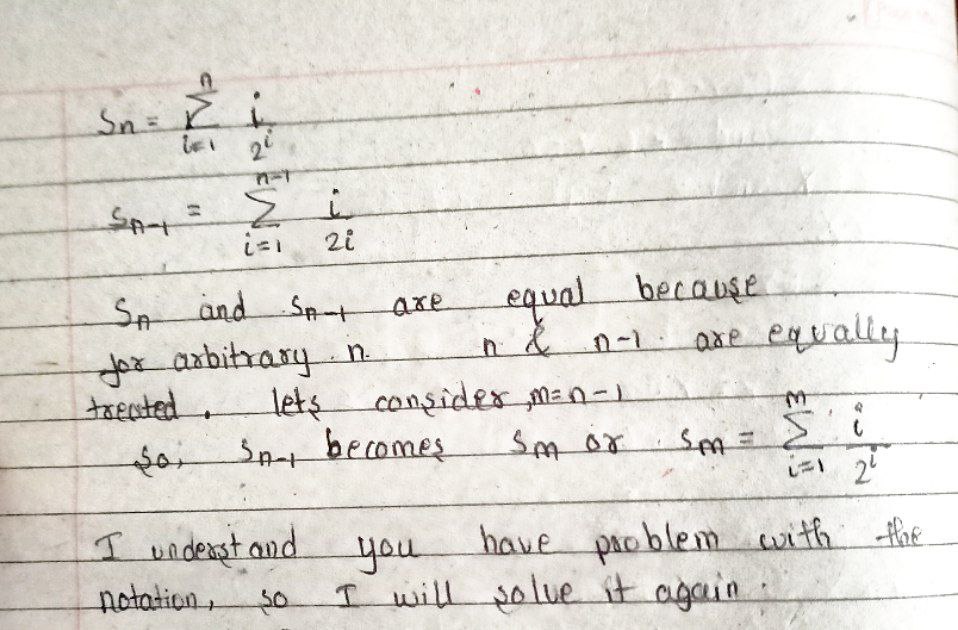 Sn = n Σ i=1 i/2^i
Sn-1 = n-1 Σ i=1 i/2i
Sn and Sn-1 are equal because
for arbitrary n. n & n-1 are equally
treated. lets consider m=n-1
so, Sn-1 becomes Sm or Sm = m Σ i=1 i/2^i
I understand you have problem with the
notation, so I will solve it again.